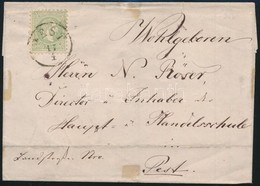 PEST
17
Wohlgeboren
Herrn N. Röser,
Director u. Inhaber der
Haupt- u. Handelsschule
Pest.